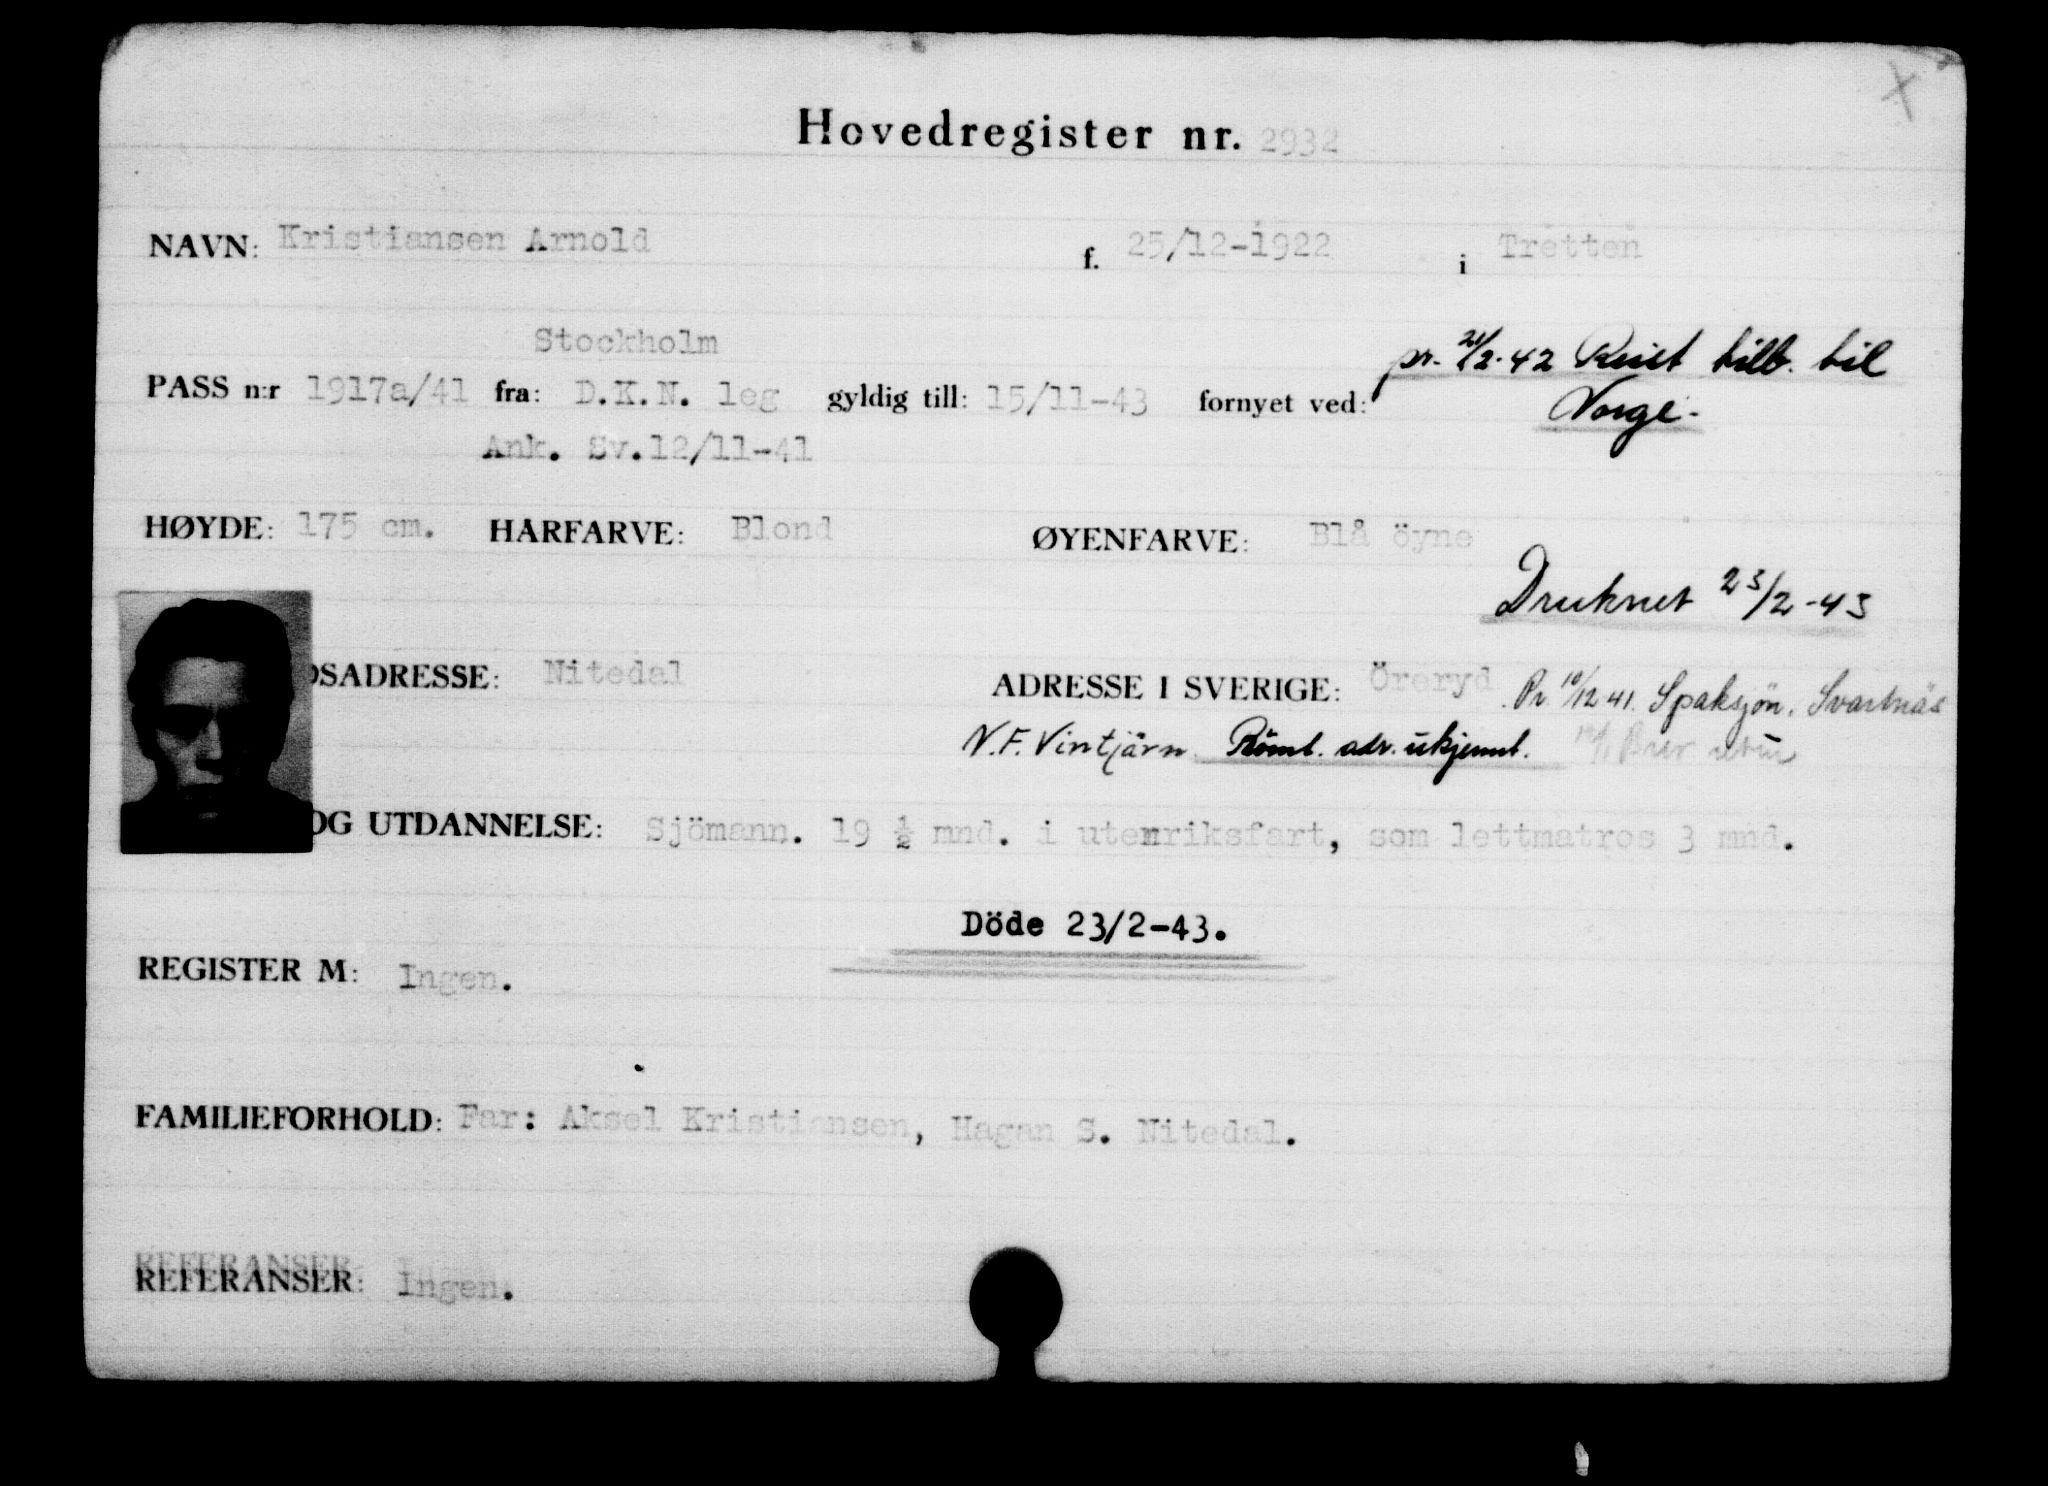 Hovedregister nr. 2932
NAVN: Kristiansen Arnold f. 25/12-1922 i Tretten
Stockholm
pr. 21/2-42 Reist tilb. til
PASS n:r 1917a/41 fra: D.K.N. leg gyldig till: 15/11-43 fornyet ved:
Norge.
Ank. Sv. 12/11-41
HØYDE: 175 cm. HÅRFARVE: Blond ØYENFARVE: Blå öyne
Druknet 23/2-43
DSADRESSE: Nitedal ADRESSE I SVERIGE: Öreryd Pr. 10/12 41. Spaksjön. Svartnäs
N.F. Vintjärn. Römt. adr. ukjennt. Brev retur
OG UTDANNELSE: Sjömann. 19 ½ mnd. i utenriksfart, som lettmatros 3 mnd.
Döde 23/2-43.
REGISTER M: Ingen.
FAMILIEFORHOLD: Far: Aksel Kristiansen, Hagan S. Nitedal.
REFERANSER:
REFERANSER: Ingen.